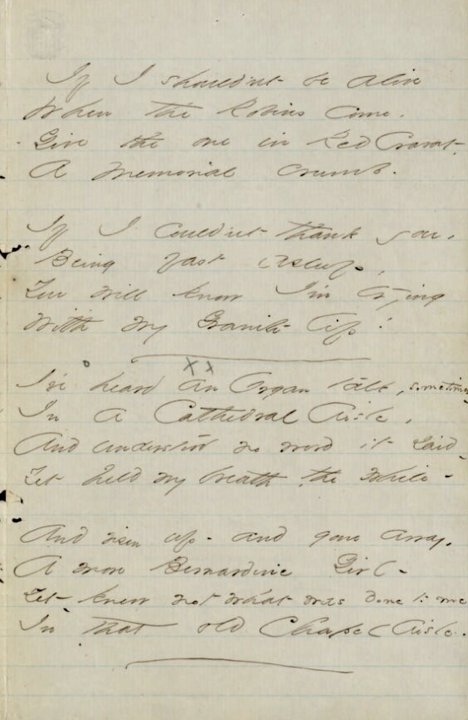 If I shouldn't be alive
When the Robins come,
Give the one in Red Cravat,
A Memorial crumb.
If I couldn't thank you,
Being fast asleep,
You will know I'm trying
With my Granite lip!
XX
I've heard an Organ talk, sometimes
In a Cathedral Aisle,
And understood no word it said -
Yet held my breath, the while -
And risen up - and gone away,
A more Bernardine Girl -
Yet - knew not what was done to me
In that old Chapel Aisle.